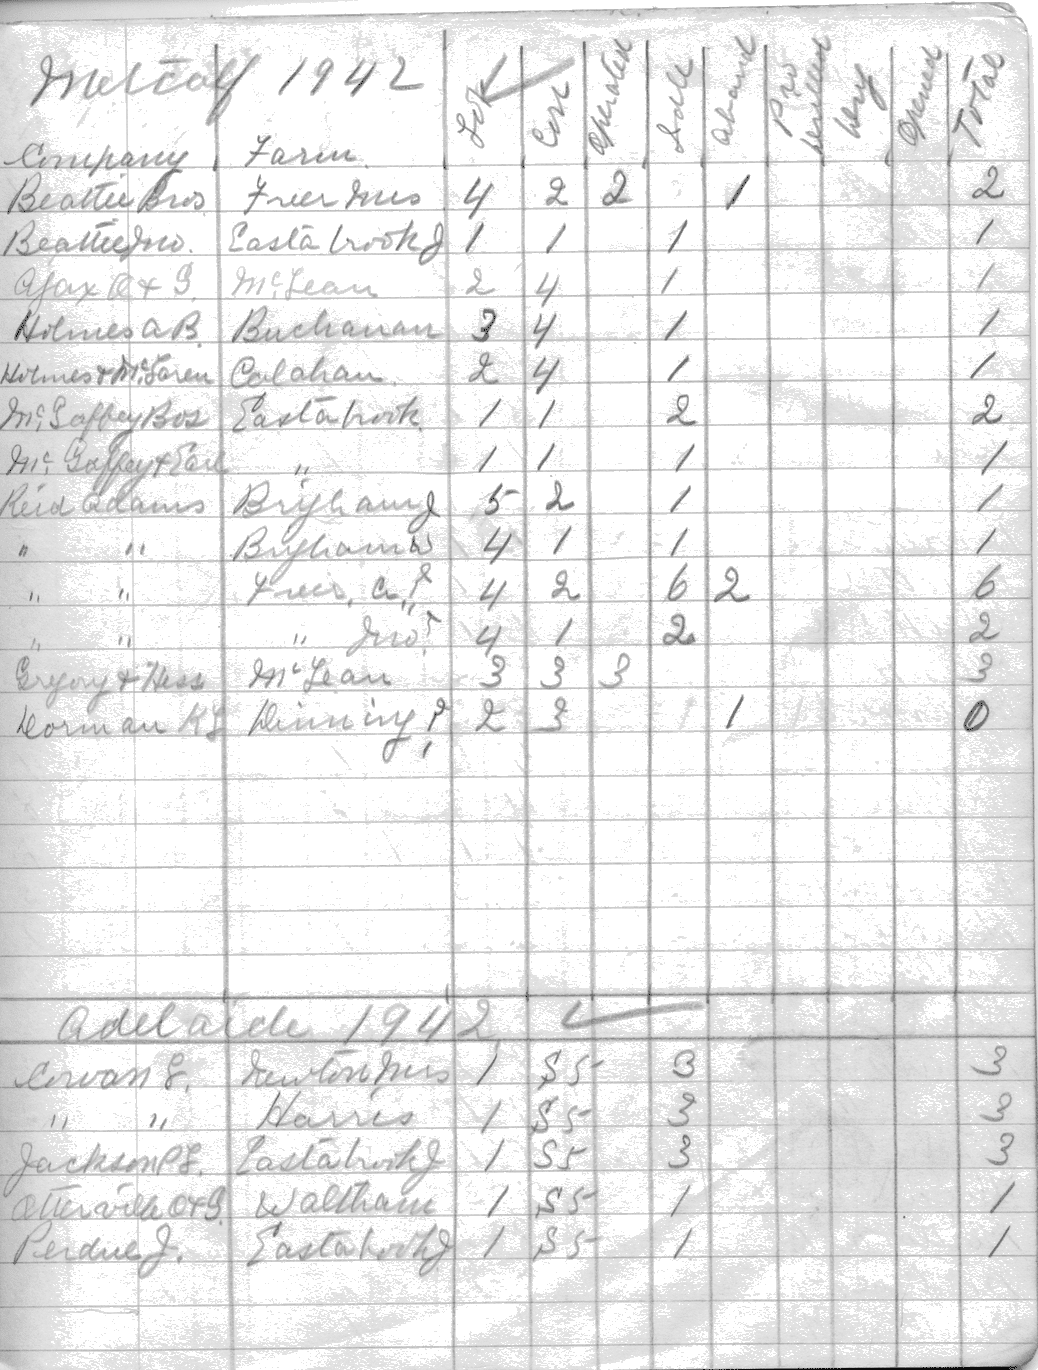 Metcalf 1942
Company Farm Lot Con Operated Idle Aband Pro Drilled Dry Opened Total
Beattie Bros Freer Mrs 4 2 2 1 2
Beattie Jno. Eastabrook J 1 1 1 1
Ajax O & G. McLean 2 4 1 1
Holmes A B. Buchanan 3 4 1 1
Holmes & McLaren Calahan. 2 4 1 1
McGaffey Bos Eastabrook 1 1 2 2
Mc Gaffey & Earl " 1 1 1 1
Reid Adams Brigham J 5 2 1 1
" " Brigham W 4 1 1 1
" " Freer, C. ? 4 2 6 2 6
" " " Jno ? 4 1 2 2
Gregory & Hess McLean 3 3 3 3
Dorman Dinning ? 2 3 1 0
Adelaide 1942
Cowan G. Newton Mrs 1 S5 3 3
" " Harris 1 S5 3 3
Jackson Eastabrook J 1 S5 3 3
Otterville O & G. Waltham 1 S5 1 1
Perdue J. Eastabrook J 1 S5 1 1